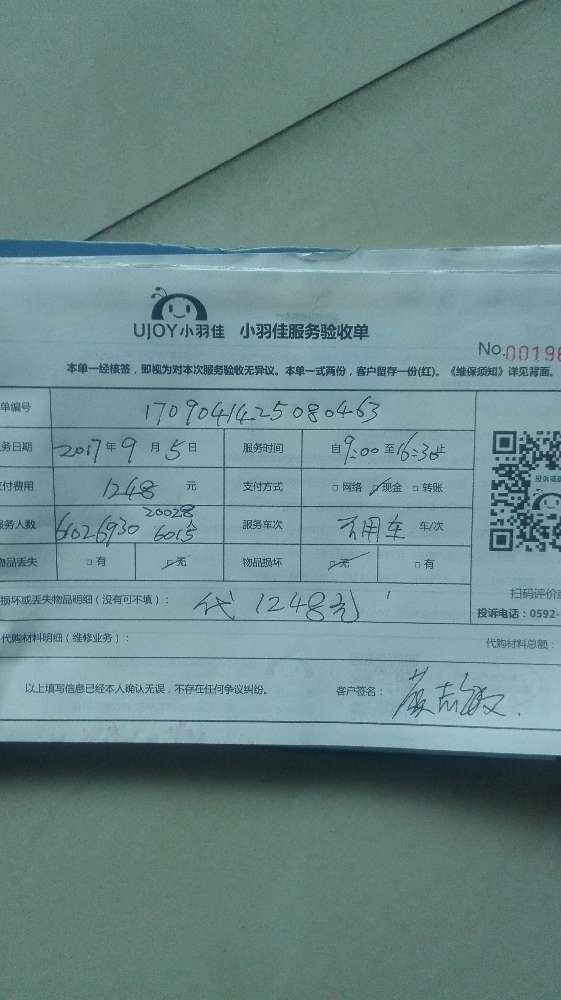 UJOY小羽佳 小羽佳服务验收单
No.00198
本单一经核签，即视为对本次服务验收无异议。本单一式两份，客户留存一份(红)。《维保须知》详见背面。
单编号 1709041425080463
务日期 2017年9月5日 服务时间 自9:00至16:30止
付费用 1248元 支付方式 □网络 □现金 □转账
服务人数 6026930 20028 6015 服务车次 不用车 车/次
物品丢失 □有 □无 物品损坏 □无 □有
损坏或丢失物品明细（没有可不填）： 代1248元
代购材料明细（维修业务）： 代购材料总额：
以上填写信息已经本人确认无误，不存在任何争议纠纷。 客户签名：
投诉或
扫码评价或
投诉电话：0592-